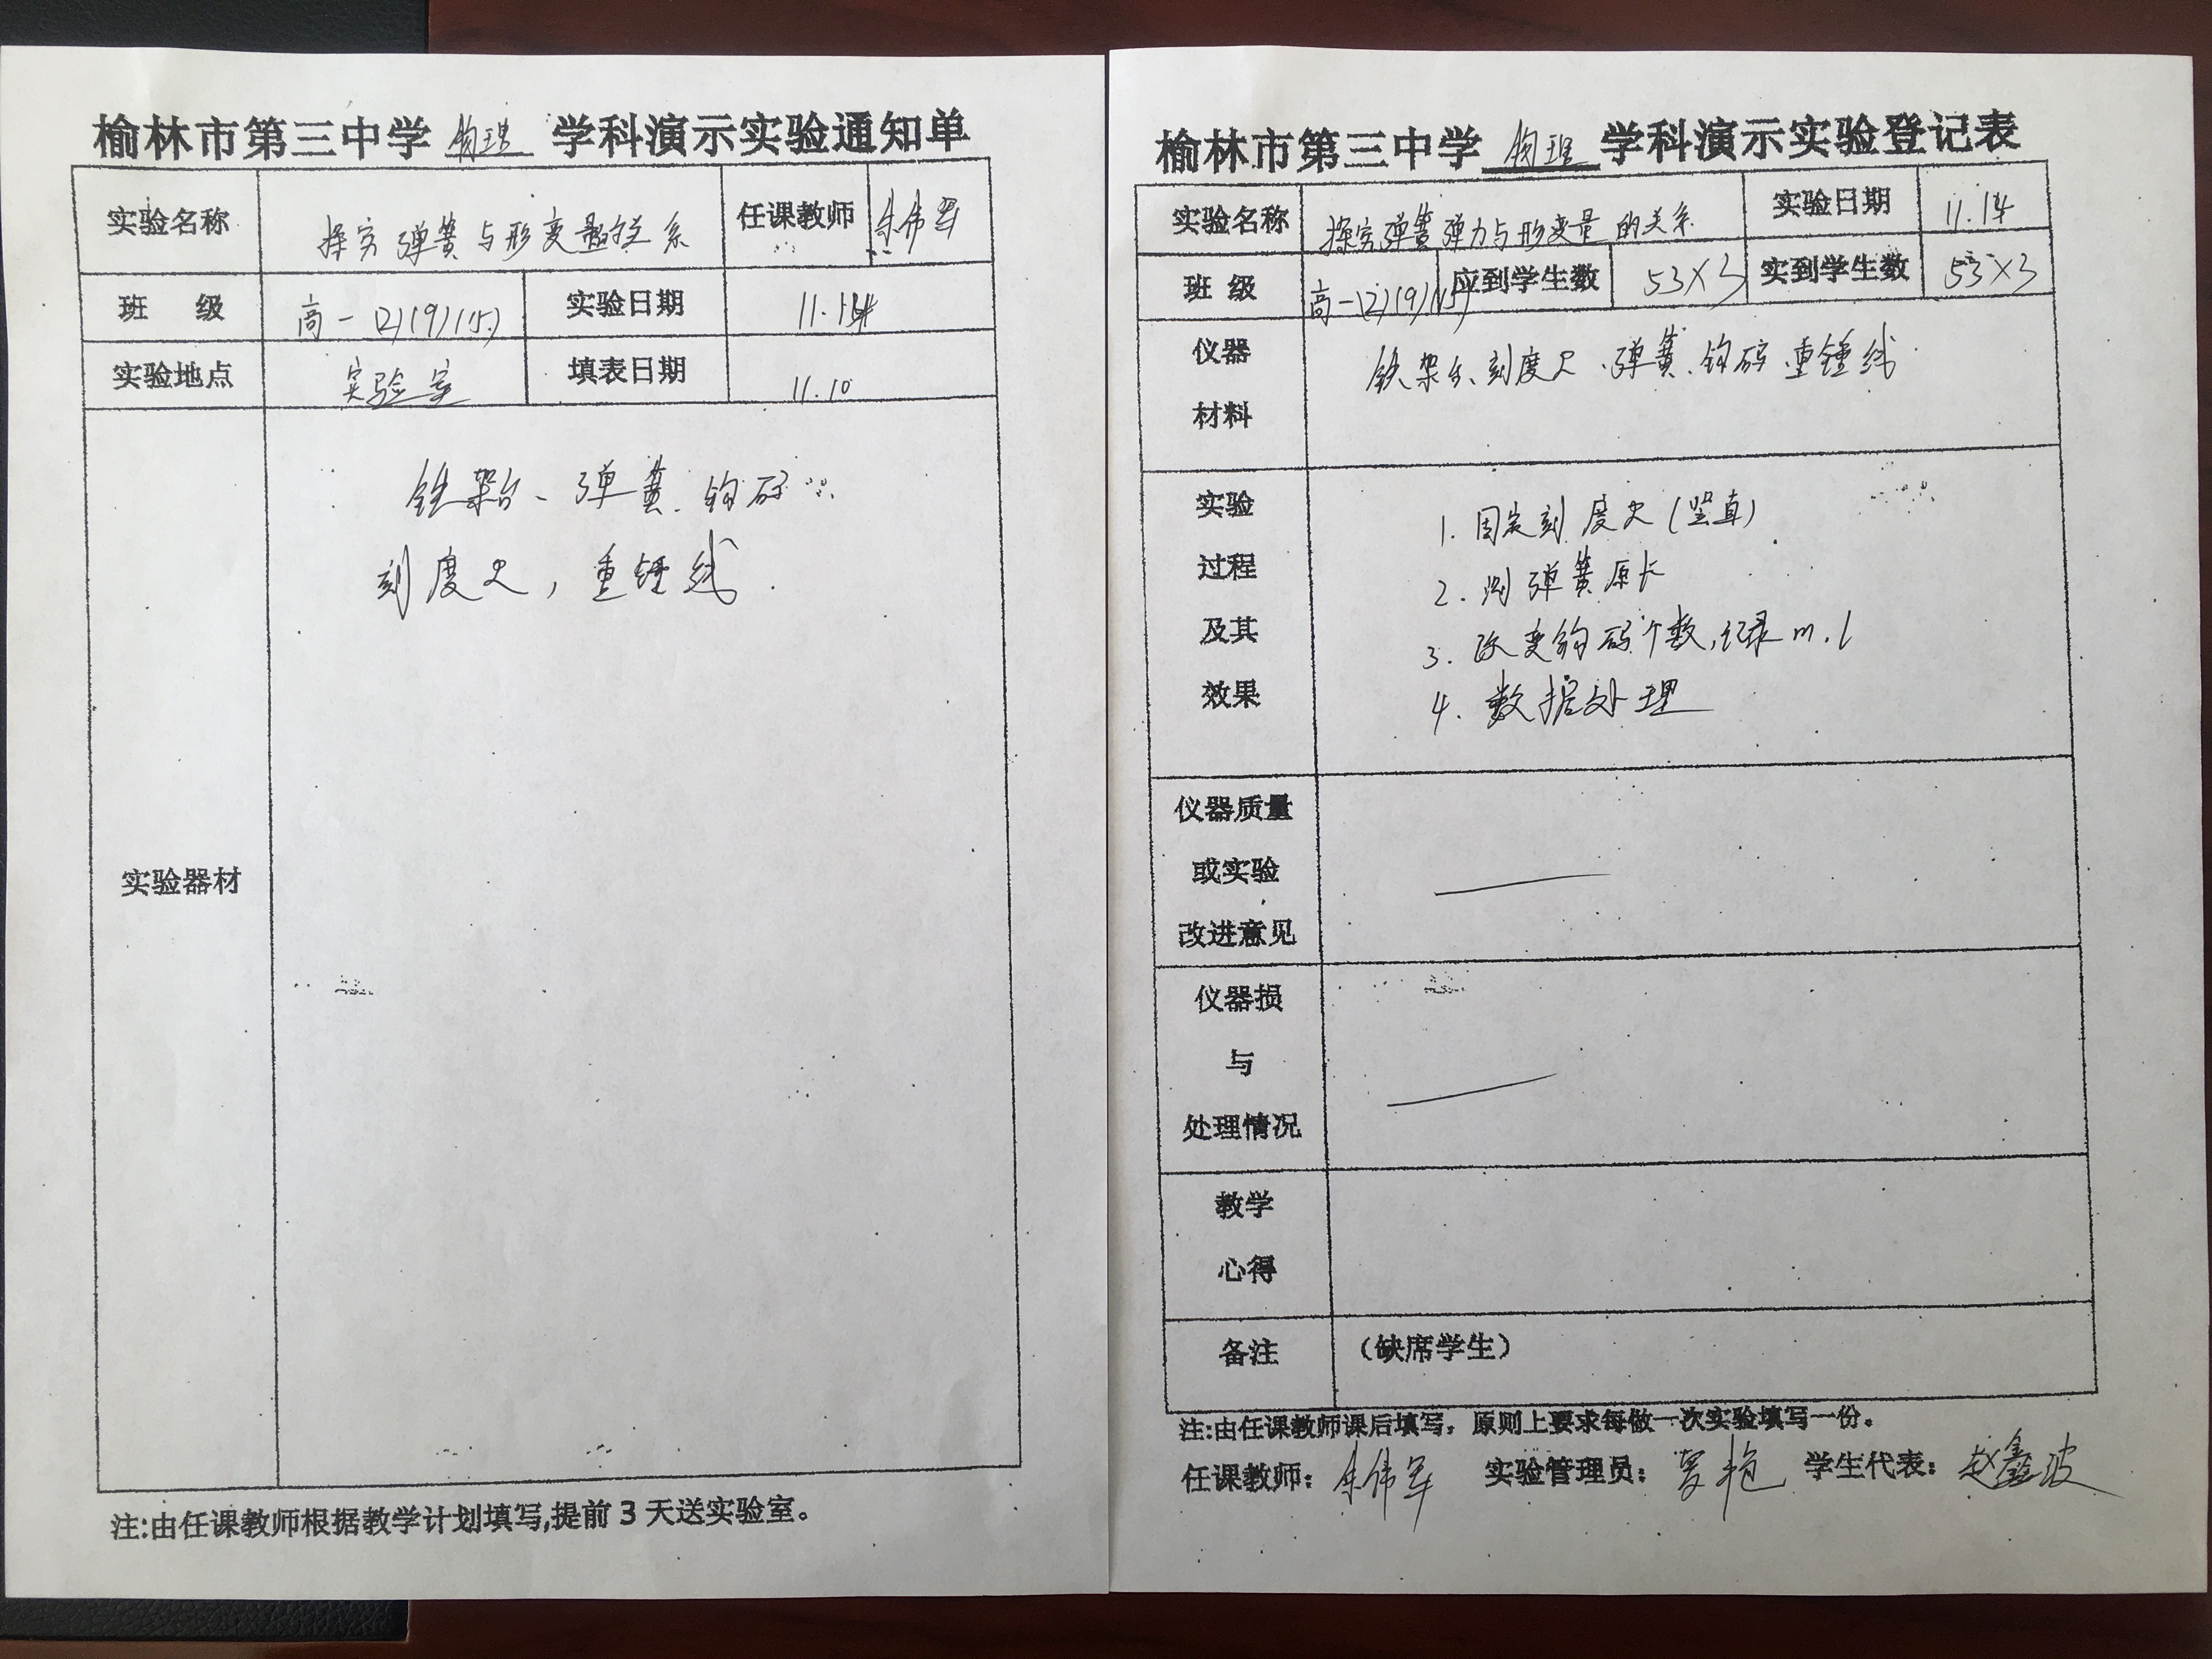 榆林市第三中学 物理 学科演示实验通知单
实验名称 探究弹簧与形变量的关系 任课教师 余伟军
班 级 高一(2)(9)(15) 实验日期 11.14
实验地点 实验室 填表日期 11.10
实验器材
铁架台、弹簧、钩码
刻度尺，重锤线.
注:由任课教师根据教学计划填写,提前3天送实验室。
榆林市第三中学 物理 学科演示实验登记表
实验名称 探究弹簧弹力与形变量的关系 实验日期 11.14
班 级 高一(2)(9)(15) 应到学生数 53×3 实到学生数 53×3
仪器
材料
铁架台、刻度尺、弹簧、钩码、重锤线
实验
过程
及其
效果
1. 固定刻度尺(竖直)
2. 测弹簧原长
3. 改变钩码个数,记录m.l
4. 数据处理
仪器质量
或实验
改进意见
仪器损
与
处理情况
教学
心得
备注 （缺席学生）
注:由任课教师课后填写，原则上要求每做一次实验填写一份。
任课教师: 余伟军 实验管理员: 学生代表: 赵鑫波